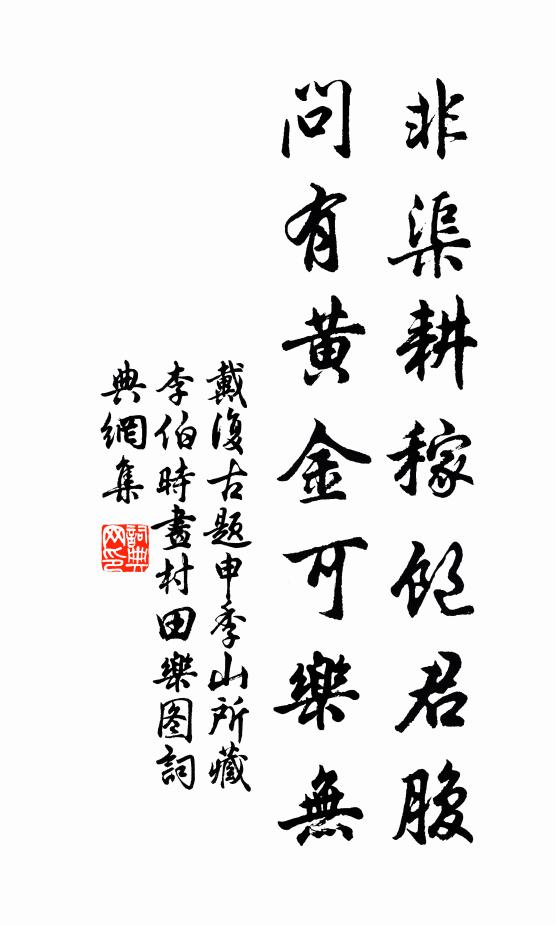 非渠耕稼飽君腹
問有黃金可樂無
戴復古題申季山所藏
李伯時畫村田樂图詞
典網集
詞典
网印